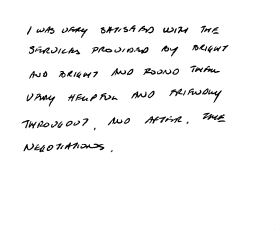 I WAS VERY SATISFIED WITH THE
SERVICES PROVIDED BY BRIGHT
AND BRIGHT AND FOUND THEM
VERY HELPFUL AND FRIENDLY
THROUGOUT, AND AFTER, THE
NEGOTIATIONS.